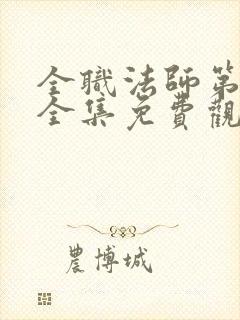 全職法師第
全集免費觀
農博城